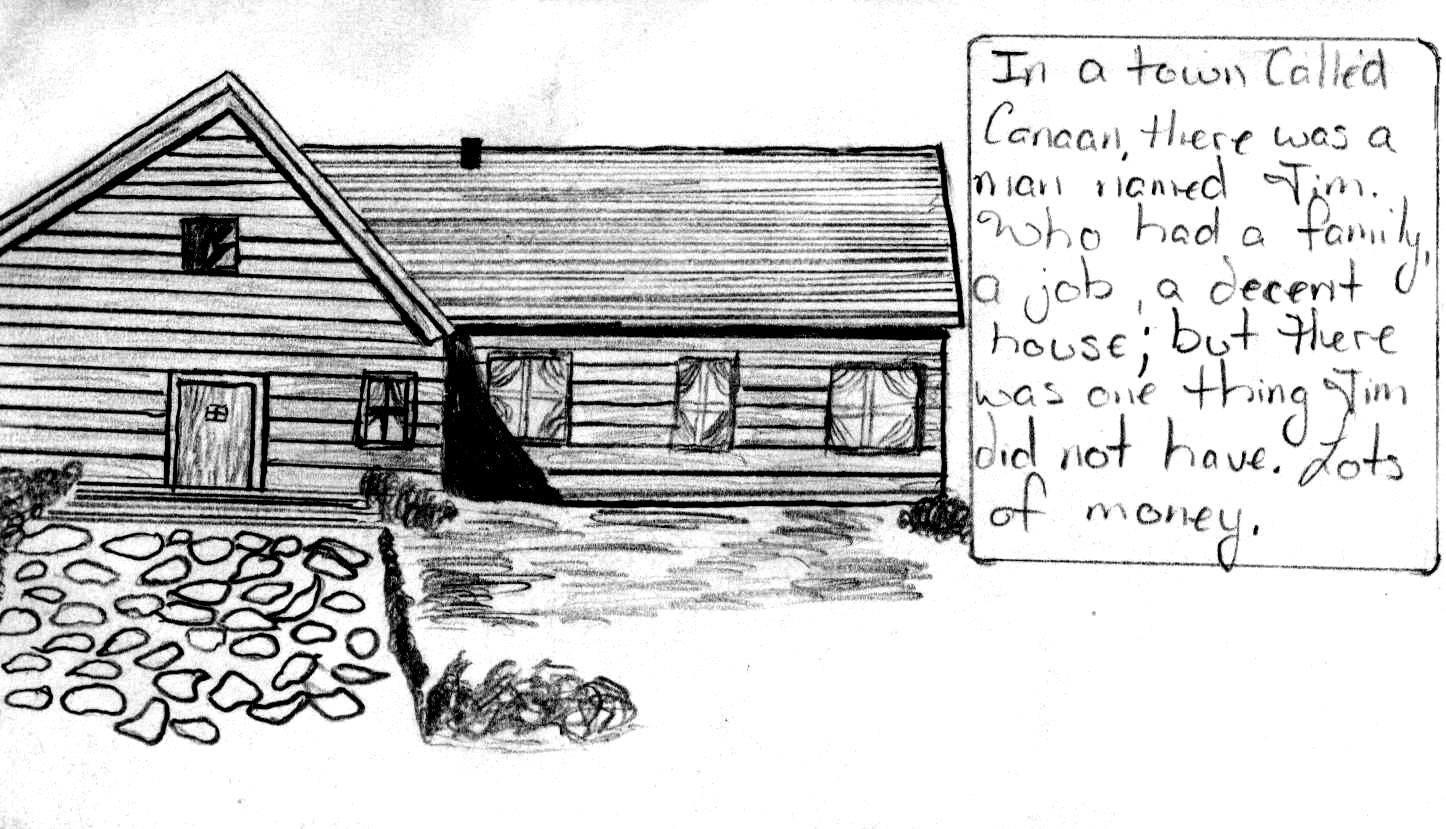 In a town Called
Canaan, there was a
man named Tim.
Who had a family,
a job, a decent
house; but there
was one thing Tim
did not have. Lots
of money.